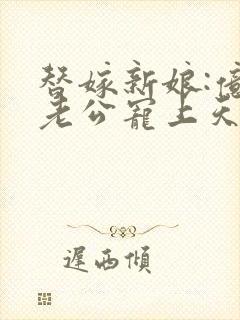 替嫁新娘:
老公宠上天
遲西傾